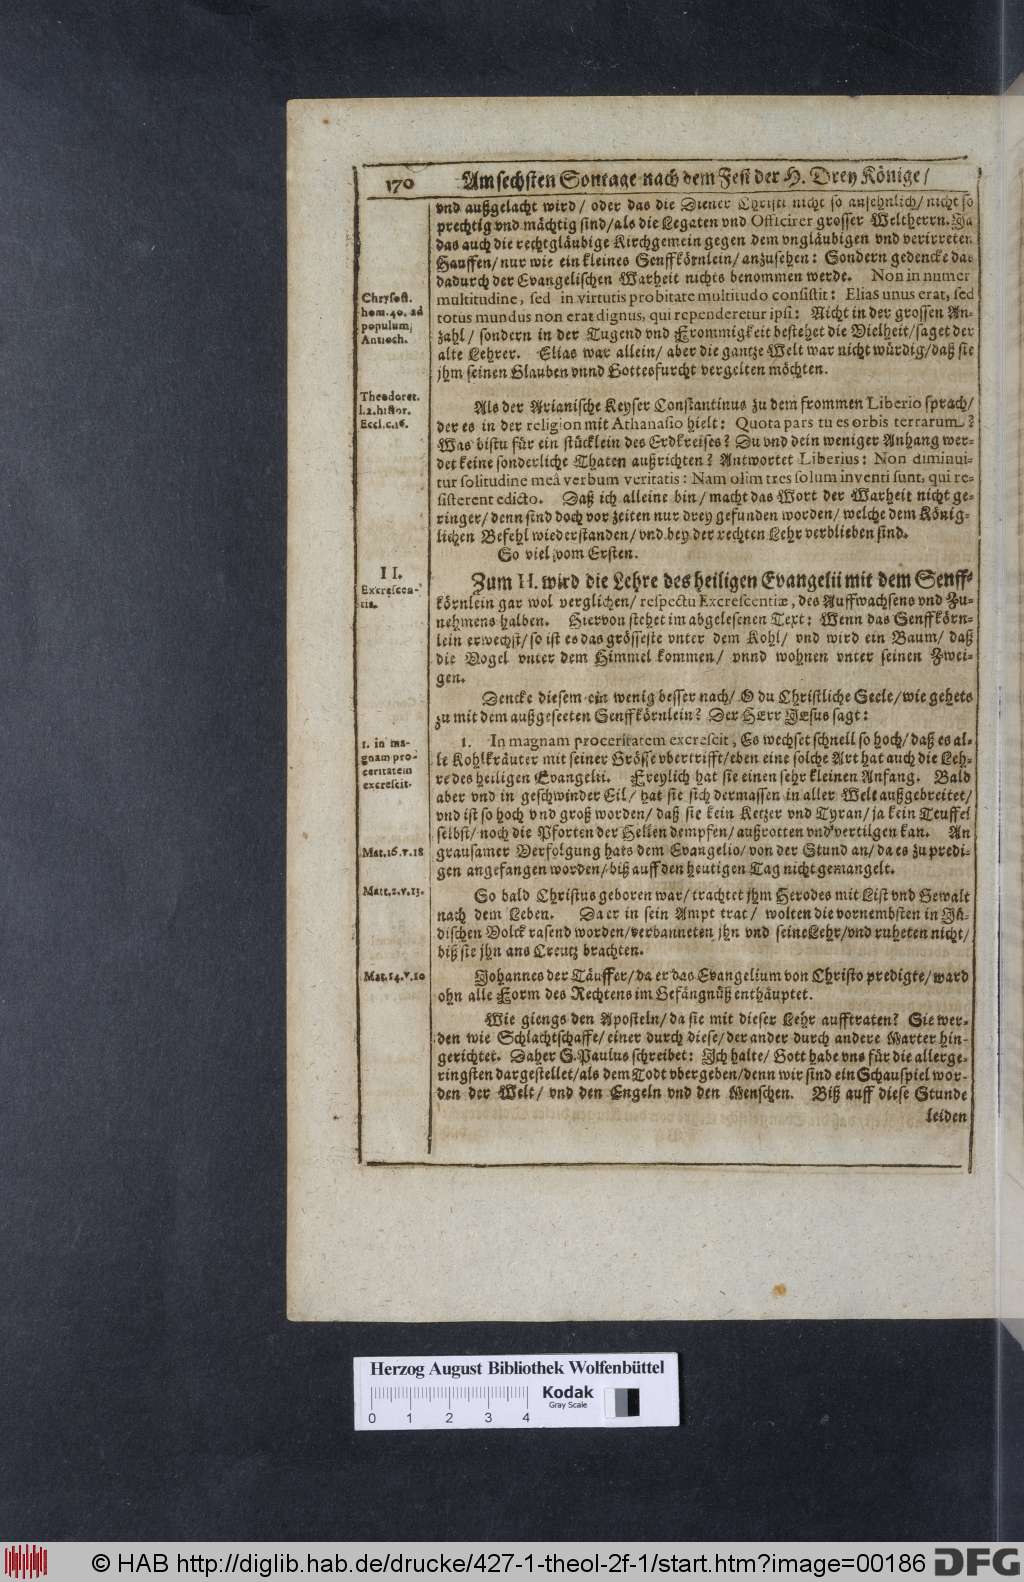 170 Am sechsten Sontage nach dem Fest der H. Drey Könige/
vnd außgelacht wird/ oder das die Diener Christi nicht so ansehnlich/ nicht so
prechtig vnd mächtig sind/ als die Legaten vnd Officirer grosser Weltherrn. Ja
das auch die rechtgläubige Kirchgemein gegen dem vngläubigen vnd verirreten
Hauffen/ nur wie ein kleines Senffkörnlein/ anzusehen: Sondern gedencke das
dadurch der Evangelischen Warheit nichts benommen werde. Non in numer
Chrysost.
hom. 40. ad
populum,
Antioch.
multitudine, sed in virtutis probitate multitudo consistit: Elias unus erat, sed
totus mundus non erat dignus, qui rependeretur ipsi: Nicht in der grossen An-
zahl/ sondern in der Tugend vnd Frommigkeit bestehet die Vielheit/ saget der
alte Lehrer. Elias war allein/ aber die gantze Welt war nicht würdig/ daß sie
jhm seinen Glauben vnnd Gottesfurcht vergelten möchten.
Theodoret.
l. 2. histor.
Eccl. c. 16.
Als der Arianische Keyser Constantinus zu dem frommen Liberio sprach/
der es in der religion mit Athanasio hielt: Quota pars tu es orbis terrarum?
Was bistu für ein stücklein des Erdkreises? Du vnd dein weniger Anhang wer-
det keine sonderliche Thaten außrichten? Antwortet Liberius: Non diminui-
tur solitudine meâ verbum veritatis: Nam olim tres solum inventi sunt, qui re-
sisterent edicto. Daß ich alleine bin/ macht das Wort der Warheit nicht ge-
ringer/ denn sind doch vor zeiten nur drey gefunden worden/ welche dem König-
lichen Befehl wiederstanden/ vnd bey der rechten Lehr verblieben sind.
So viel vom Ersten.
II.
Excrescen-
tia.
Zum II. wird die Lehre des heiligen Evangelii mit dem Senff-
körnlein gar wol verglichen/ respectu Excrescentiæ, des Auffwachsens vnd Zu-
nehmens halben. Hiervon stehet im abgelesenen Text: Wenn das Senffkörn-
lein erwechst/ so ist es das grösseste vnter dem Kohl/ vnd wird ein Baum/ daß
die Vogel vnter dem Himmel kommen/ vnnd wohnen vnter seinen Zwei-
gen.
Dencke diesem ein wenig besser nach/ O du Christliche Seele/ wie gehets
zu mit dem außgeseeten Senffkörnlein? Der HErr JEsus sagt:
1. in ma-
gnam pro-
ceritatem
excrescit.
1. In magnam proceritatem excrescit, Es wechset schnell so hoch/ daß es al-
le Kohlkräuter mit seiner Grösse vbertrifft/ eben eine solche Art hat auch die Leh-
re des heiligen Evangelii. Freylich hat sie einen sehr kleinen Anfang. Bald
aber vnd in geschwinder Eil/ hat sie sich dermassen in aller Welt außgebreitet/
vnd ist so hoch vnd groß worden/ daß sie kein Ketzer vnd Tyran/ ja kein Teuffel
selbst/ noch die Pforten der Hellen dempfen/ außrotten vnd vertilgen kan. An
Mat. 16. v. 18
grausamer Verfolgung hats dem Evangelio/ von der Stund an/ da es zu predi-
gen angefangen worden/ biß auff den heutigen Tag nicht gemangelt.
Matt. 2. v. 13.
So bald Christus geboren war/ trachtet jhm Herodes mit List vnd Gewalt
nach dem Leben. Da er in sein Ampt trat/ wolten die vornembsten in Jü-
dischen Volck rasend worden/ verbanneten jhn vnd seine Lehr/ vnd ruheten nicht/
biß sie jhn ans Creutz brachten.
Mat. 14. v. 10
Johannes der Täuffer/ da er das Evangelium von Christo predigte/ ward
ohn alle Form des Rechtens im Gefängnüß enthäuptet.
Wie giengs den Aposteln/ da sie mit dieser Lehr aufftraten? Sie wer-
den wie Schlachtschaffe/ einer durch diese/ der ander durch andere Marter hin-
gerichtet. Daher S. Paulus schreibet: Ich halte/ Gott habe vns für die allerge-
ringsten dargestellet/ als dem Todt vbergeben/ denn wir sind ein Schauspiel wor-
den der Welt/ vnd den Engeln vnd den Menschen. Biß auff diese Stunde
leiden
Herzog August Bibliothek Wolfenbüttel
0 1 2 3 4
Kodak
Gray Scale
© HAB http://diglib.hab.de/drucke/427-1-theol-2f-1/start.htm?image=00186 DFG